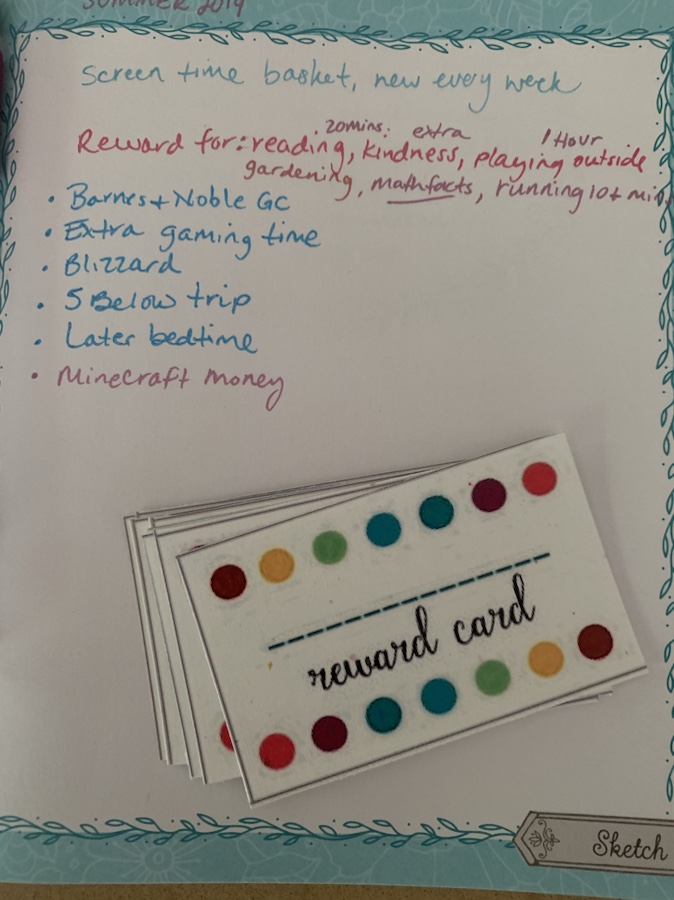 SUMMER 2019
Screen time basket, new every week
20mins. extra 1 Hour
Reward for: reading, kindness, playing outside
gardening, mathfacts, running 10+ min
• Barnes + Noble GC
• Extra gaming time
• Blizzard
• 5 Below trip
• Later bedtime
• Minecraft money
reward card
Sketch